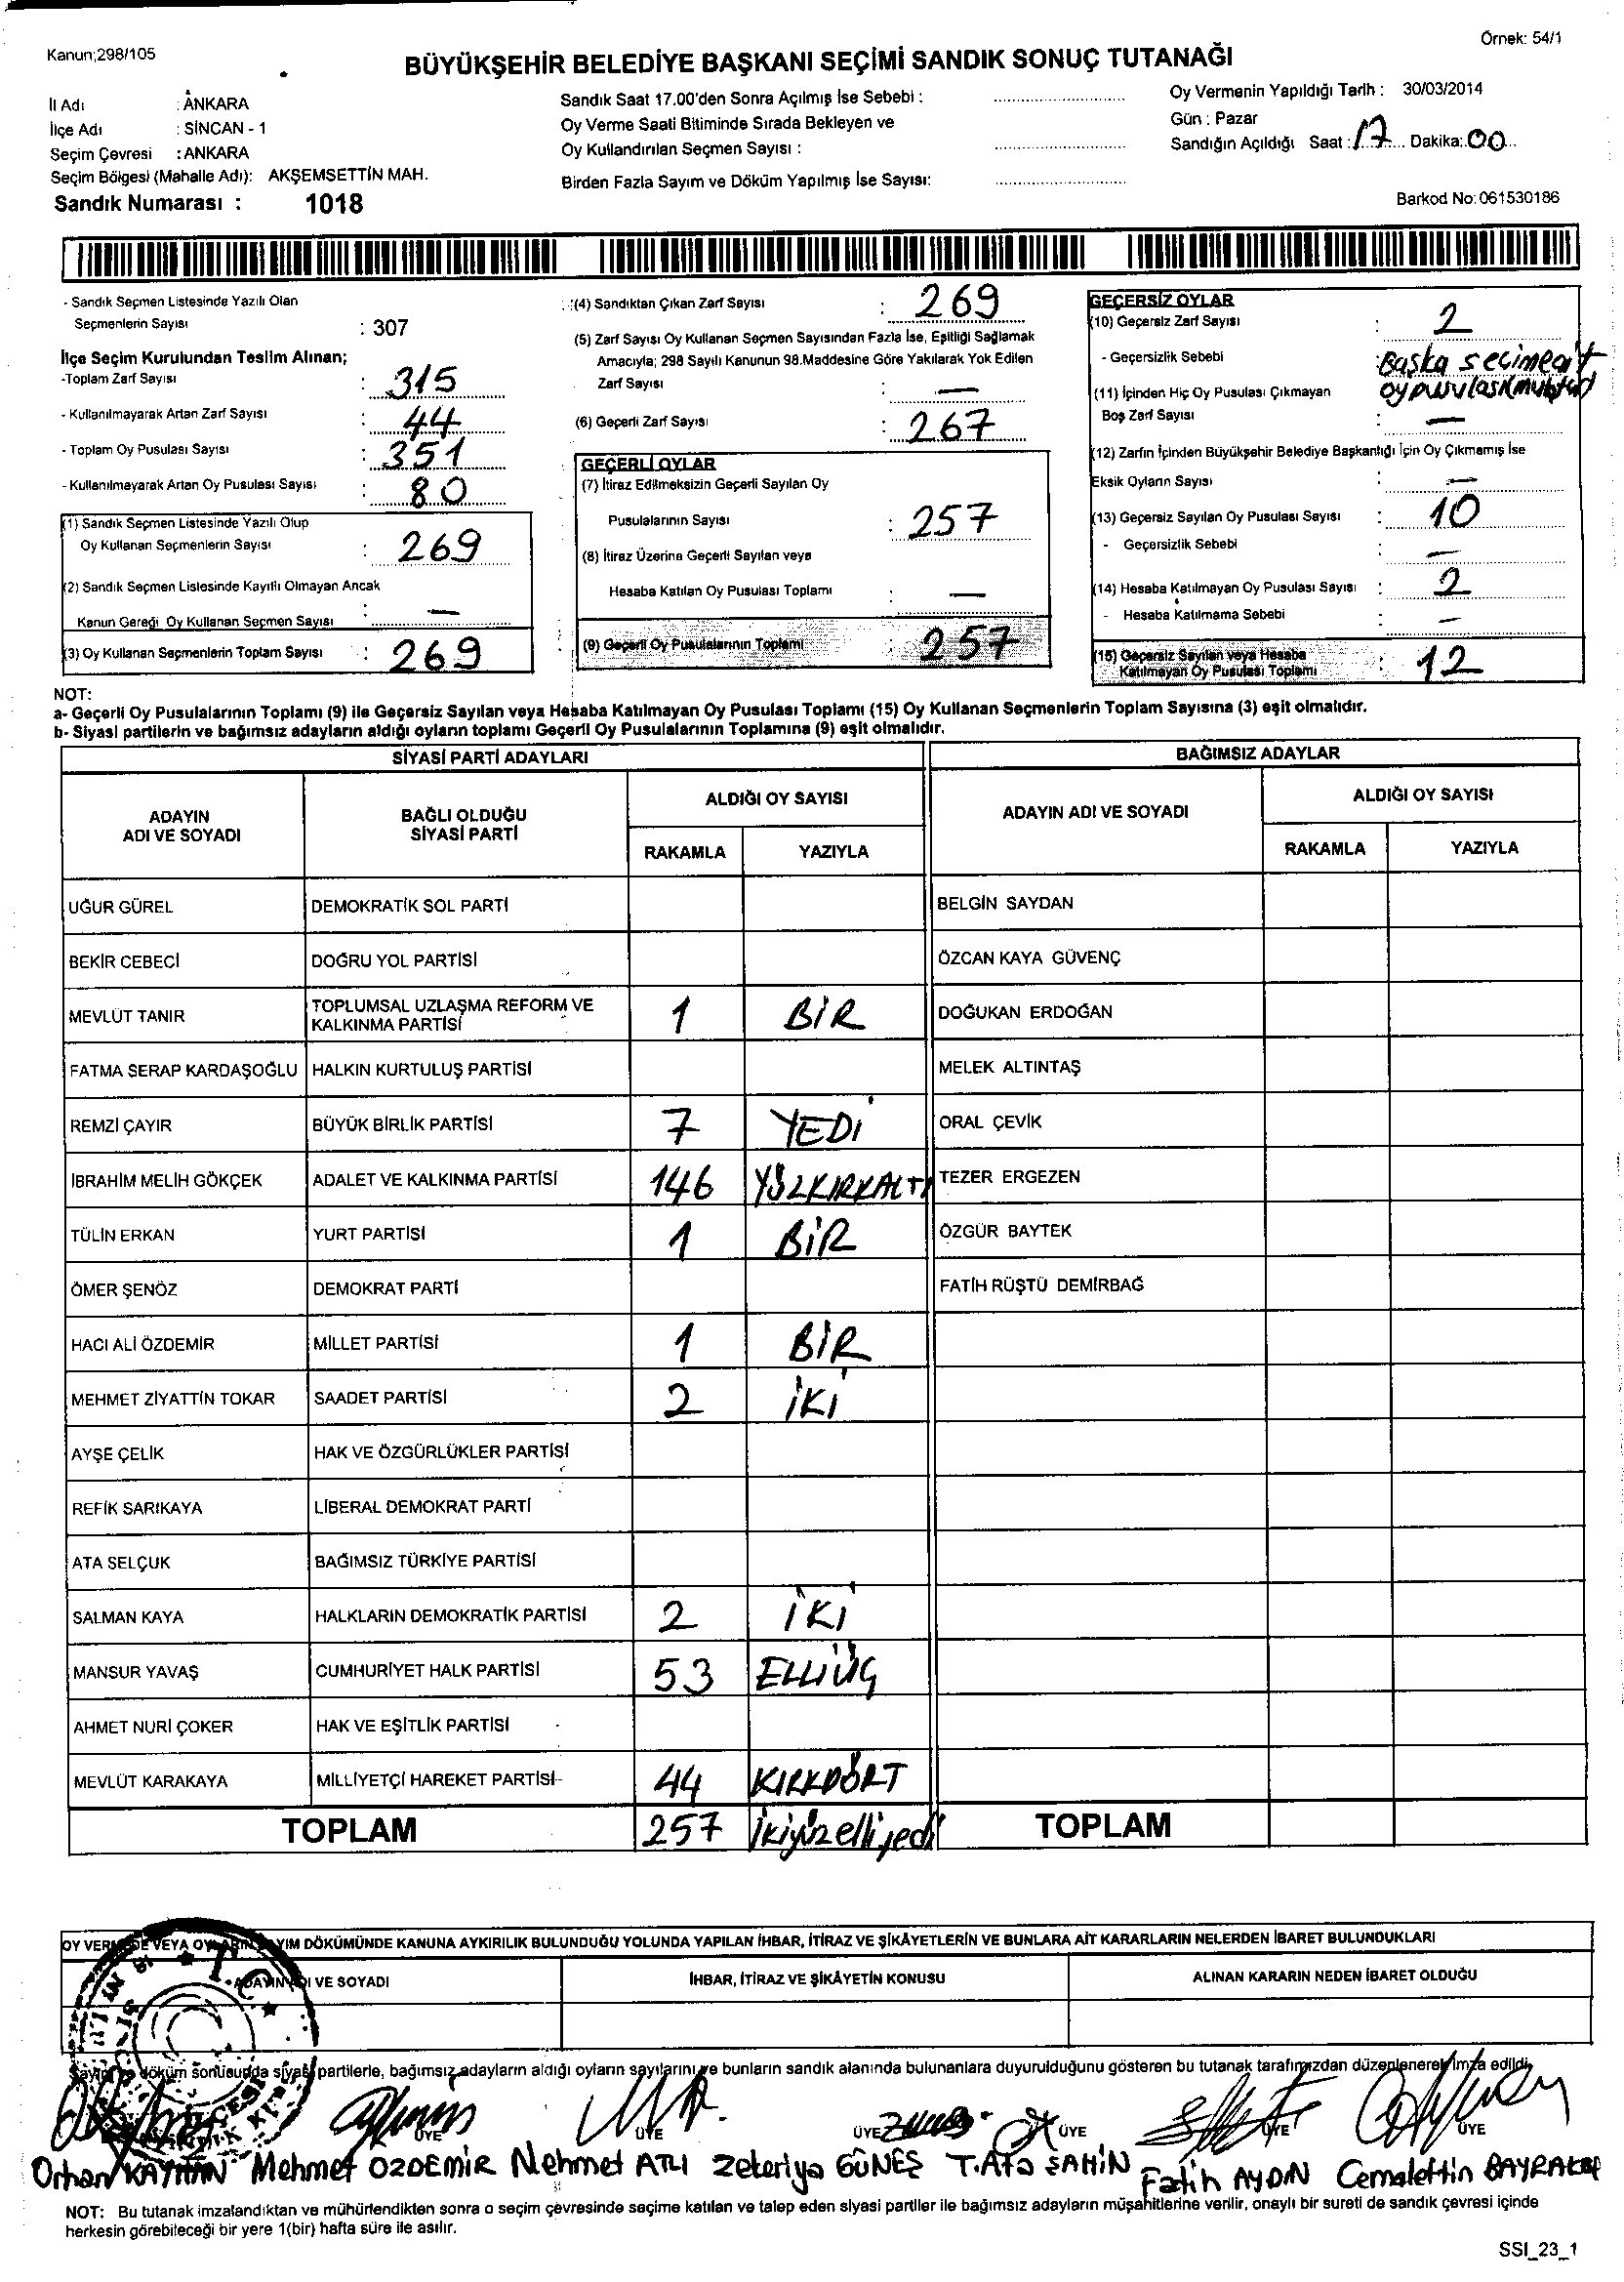 Kanun;298/105
Örnek: 54/1
BÜYÜKŞEHİR BELEDİYE BAŞKANI SEÇİMİ SANDIK SONUÇ TUTANAĞI
İl Adı : ANKARA
İlçe Adı : SİNCAN - 1
Seçim Çevresi : ANKARA
Seçim Bölgesi (Mahalle Adı): AKŞEMSETTİN MAH.
Sandık Numarası : 1018
Sandık Saat 17.00'den Sonra Açılmış İse Sebebi :
Oy Verme Saati Bitiminde Sırada Bekleyen ve
Oy Kullandırılan Seçmen Sayısı :
Birden Fazla Sayım ve Döküm Yapılmış İse Sayısı:
Oy Vermenin Yapıldığı Tarih : 30/03/2014
Gün : Pazar
Sandığın Açıldığı Saat : 17 Dakika: 00
Barkod No: 061530186
- Sandık Seçmen Listesinde Yazılı Olan
Seçmenlerin Sayısı : 307
İlçe Seçim Kurulundan Teslim Alınan;
-Toplam Zarf Sayısı : 315
- Kullanılmayarak Artan Zarf Sayısı : 44
- Toplam Oy Pusulası Sayısı : 351
- Kullanılmayarak Artan Oy Pusulası Sayısı : 80
(1) Sandık Seçmen Listesinde Yazılı Olup
Oy Kullanan Seçmenlerin Sayısı : 269
(2) Sandık Seçmen Listesinde Kayıtlı Olmayan Ancak
Kanun Gereği Oy Kullanan Seçmen Sayısı : —
(3) Oy Kullanan Seçmenlerin Toplam Sayısı : 269
(4) Sandıktan Çıkan Zarf Sayısı : 269
(5) Zarf Sayısı Oy Kullanan Seçmen Sayısından Fazla İse, Eşitliği Sağlamak
Amacıyla; 298 Sayılı Kanunun 98.Maddesine Göre Yakılarak Yok Edilen
Zarf Sayısı : —
(6) Geçerli Zarf Sayısı : 267
GEÇERLİ OYLAR
(7) İtiraz Edilmeksizin Geçerli Sayılan Oy
Pusulalarının Sayısı : 257
(8) İtiraz Üzerine Geçerli Sayılan veya
Hesaba Katılan Oy Pusulası Toplamı : —
(9) Geçerli Oy Pusulalarının Toplamı : 257
GEÇERSİZ OYLAR
(10) Geçersiz Zarf Sayısı : 2
- Geçersizlik Sebebi : Başka seçime ait
oy pusulası(muhtar)
(11) İçinden Hiç Oy Pusulası Çıkmayan
Boş Zarf Sayısı : —
(12) Zarfın İçinden Büyükşehir Belediye Başkanlığı İçin Oy Çıkmamış İse
Eksik Oyların Sayısı : —
(13) Geçersiz Sayılan Oy Pusulası Sayısı : 10
- Geçersizlik Sebebi : —
(14) Hesaba Katılmayan Oy Pusulası Sayısı : 2
- Hesaba Katılmama Sebebi : —
(15) Geçersiz Sayılan veya Hesaba
Katılmayan Oy Pusulası Toplamı : 12
NOT:
a- Geçerli Oy Pusulalarının Toplamı (9) ile Geçersiz Sayılan veya Hesaba Katılmayan Oy Pusulası Toplamı (15) Oy Kullanan Seçmenlerin Toplam Sayısına (3) eşit olmalıdır.
b- Siyasi partilerin ve bağımsız adayların aldığı oyların toplamı Geçerli Oy Pusulalarının Toplamına (9) eşit olmalıdır.
SİYASİ PARTİ ADAYLARI BAĞIMSIZ ADAYLAR
ADAYIN ADI VE SOYADI BAĞLI OLDUĞU SİYASİ PARTİ ALDIĞI OY SAYISI ADAYIN ADI VE SOYADI ALDIĞI OY SAYISI
RAKAMLA YAZIYLA RAKAMLA YAZIYLA
UĞUR GÜREL DEMOKRATİK SOL PARTİ BELGİN SAYDAN
BEKİR CEBECİ DOĞRU YOL PARTİSİ ÖZCAN KAYA GÜVENÇ
MEVLÜT TANIR TOPLUMSAL UZLAŞMA REFORM VE KALKINMA PARTİSİ 1 BİR DOĞUKAN ERDOĞAN
FATMA SERAP KARDAŞOĞLU HALKIN KURTULUŞ PARTİSİ MELEK ALTINTAŞ
REMZİ ÇAYIR BÜYÜK BİRLİK PARTİSİ 7 YEDİ ORAL ÇEVİK
İBRAHİM MELİH GÖKÇEK ADALET VE KALKINMA PARTİSİ 146 YÜZKIRKALTI TEZER ERGEZEN
TÜLİN ERKAN YURT PARTİSİ 1 BİR ÖZGÜR BAYTEK
ÖMER ŞENÖZ DEMOKRAT PARTİ FATİH RÜŞTÜ DEMİRBAĞ
HACI ALİ ÖZDEMİR MİLLET PARTİSİ 1 BİR
MEHMET ZİYATTİN TOKAR SAADET PARTİSİ 2 İKİ
AYŞE ÇELİK HAK VE ÖZGÜRLÜKLER PARTİSİ
REFİK SARIKAYA LİBERAL DEMOKRAT PARTİ
ATA SELÇUK BAĞIMSIZ TÜRKİYE PARTİSİ
SALMAN KAYA HALKLARIN DEMOKRATİK PARTİSİ 2 İKİ
MANSUR YAVAŞ CUMHURİYET HALK PARTİSİ 53 ELLİÜÇ
AHMET NURİ ÇOKER HAK VE EŞİTLİK PARTİSİ
MEVLÜT KARAKAYA MİLLİYETÇİ HAREKET PARTİSİ 44 KIRKDÖRT
TOPLAM 257 İkiyüzelliyedi TOPLAM
OY VERMEDE VEYA OYLARIN SAYIM DÖKÜMÜNDE KANUNA AYKIRILIK BULUNDUĞU YOLUNDA YAPILAN İHBAR, İTİRAZ VE ŞİKÂYETLERİN VE BUNLARA AİT KARARLARIN NELERDEN İBARET BULUNDUKLARI
ADAYIN ADI VE SOYADI İHBAR, İTİRAZ VE ŞİKÂYETİN KONUSU ALINAN KARARIN NEDEN İBARET OLDUĞU
T.C.
Sayım ve döküm sonucunda siyasi partilerle, bağımsız adayların aldığı oyların sayılarını ve bunların sandık alanında bulunanlara duyurulduğunu gösteren bu tutanak tarafımızdan düzenlenerek imza edildi.
ÜYE ÜYE ÜYE ÜYE ÜYE ÜYE
Orhan KAYHAN Mehmet ÖZDEMİR Mehmet ATLI Zekeriya GÜNEŞ T.Ata ŞAHİN Fatih AYDIN Cemalettin BAYRAKTAR
NOT: Bu tutanak imzalandıktan ve mühürlendikten sonra o seçim çevresinde seçime katılan ve talep eden siyasi partiler ile bağımsız adayların müşahitlerine verilir, onaylı bir sureti de sandık çevresi içinde
herkesin görebileceği bir yere 1(bir) hafta süre ile asılır.
SSI_23_1